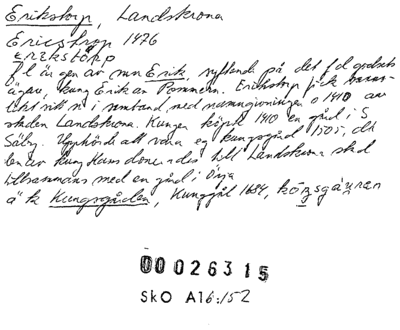 Erikstorp, Landskrona
Ericstrop 1476
erekstôrp
f l är gen av mn Erik, syftande på det f d godsets
ägare, kung Erik av Pommern. Erikstorp fick
i samband med namngivningen o 1410 av
staden Landskrona. Kungen köpte 1410 en gård i S
Säby. Upphörde att vara eg kungsgård 1505, då
kung Hans donerades till Landskrona stad
tillsammans med en gård i Örja
ä k Kungsgården, Kunggål 1684,
00026315
Sko A16:152